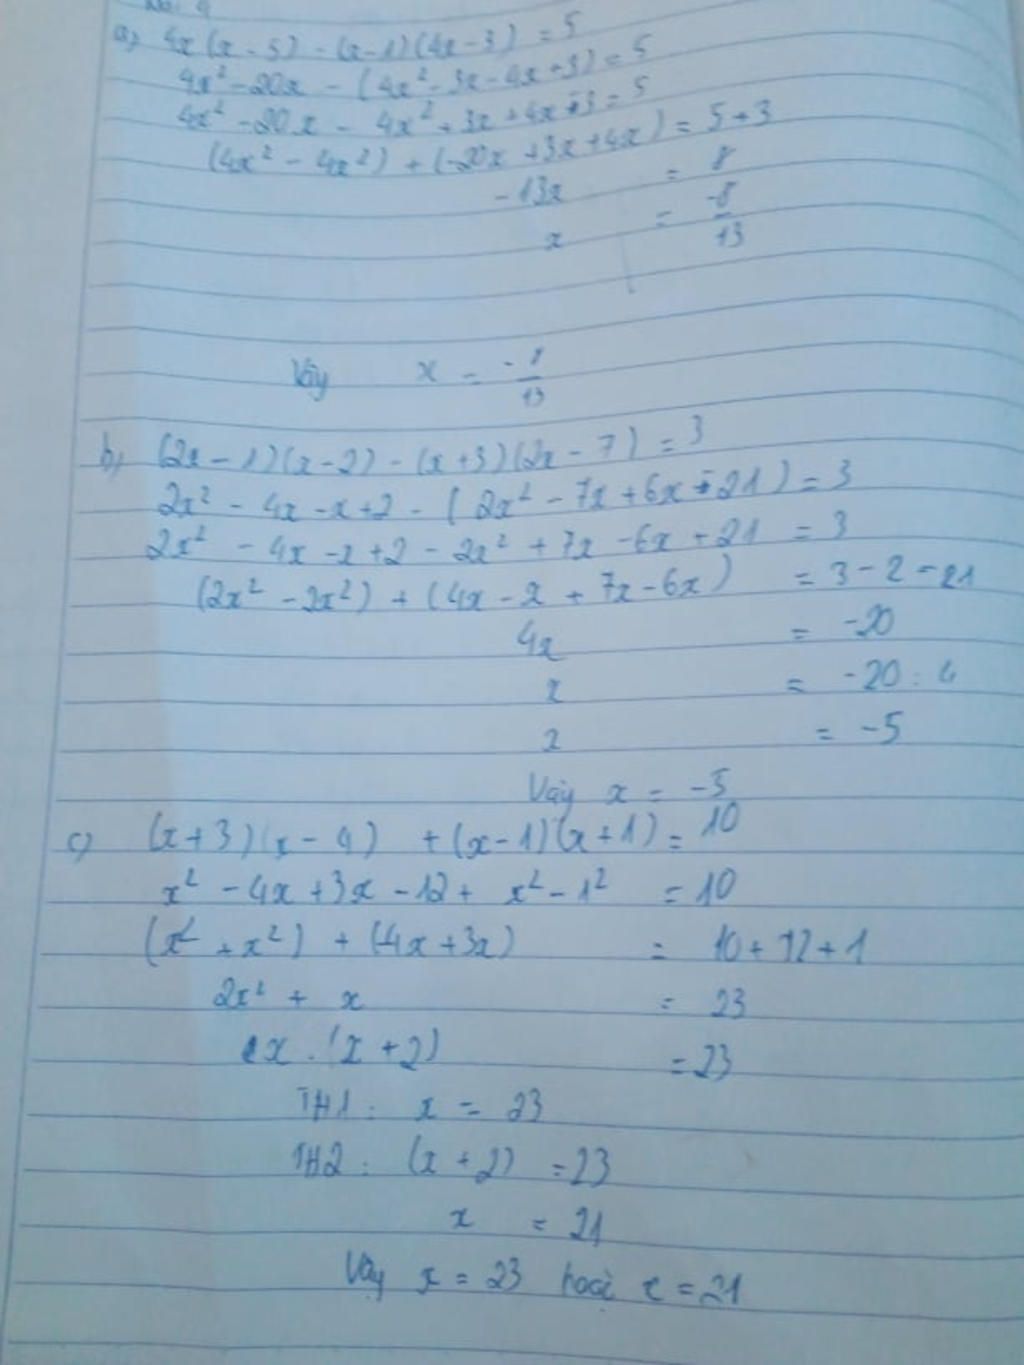 a) 4x(x-5) - (x-1)(4x-3) = 5
4x² - 20x - (4x² - 3x - 4x + 3) = 5
4x² - 20x - 4x² + 3x + 4x - 3 = 5
(4x² - 4x²) + (-20x + 3x + 4x) = 5+3
-13x = 8
x = -8/13
Vậy x = -8/13
b) (2x-1)(x-2) - (x+3)(2x-7) = 3
2x² - 4x - x + 2 - (2x² - 7x + 6x - 21) = 3
2x² - 4x - x + 2 - 2x² + 7x - 6x + 21 = 3
(2x² - 2x²) + (4x - x + 7x - 6x) = 3 - 2 - 21
4x = -20
x = -20 : 4
x = -5
Vậy x = -5
c) (x+3)(x-4) + (x-1)(x+1) = 10
x² - 4x + 3x - 12 + x² - 1² = 10
(x² + x²) + (-4x + 3x) = 10 + 12 + 1
2x² + x = 23
x . (x+2) = 23
TH1 : x = 23
TH2 : (x+2) = 23
x = 21
Vậy x = 23 hoặc x = 21